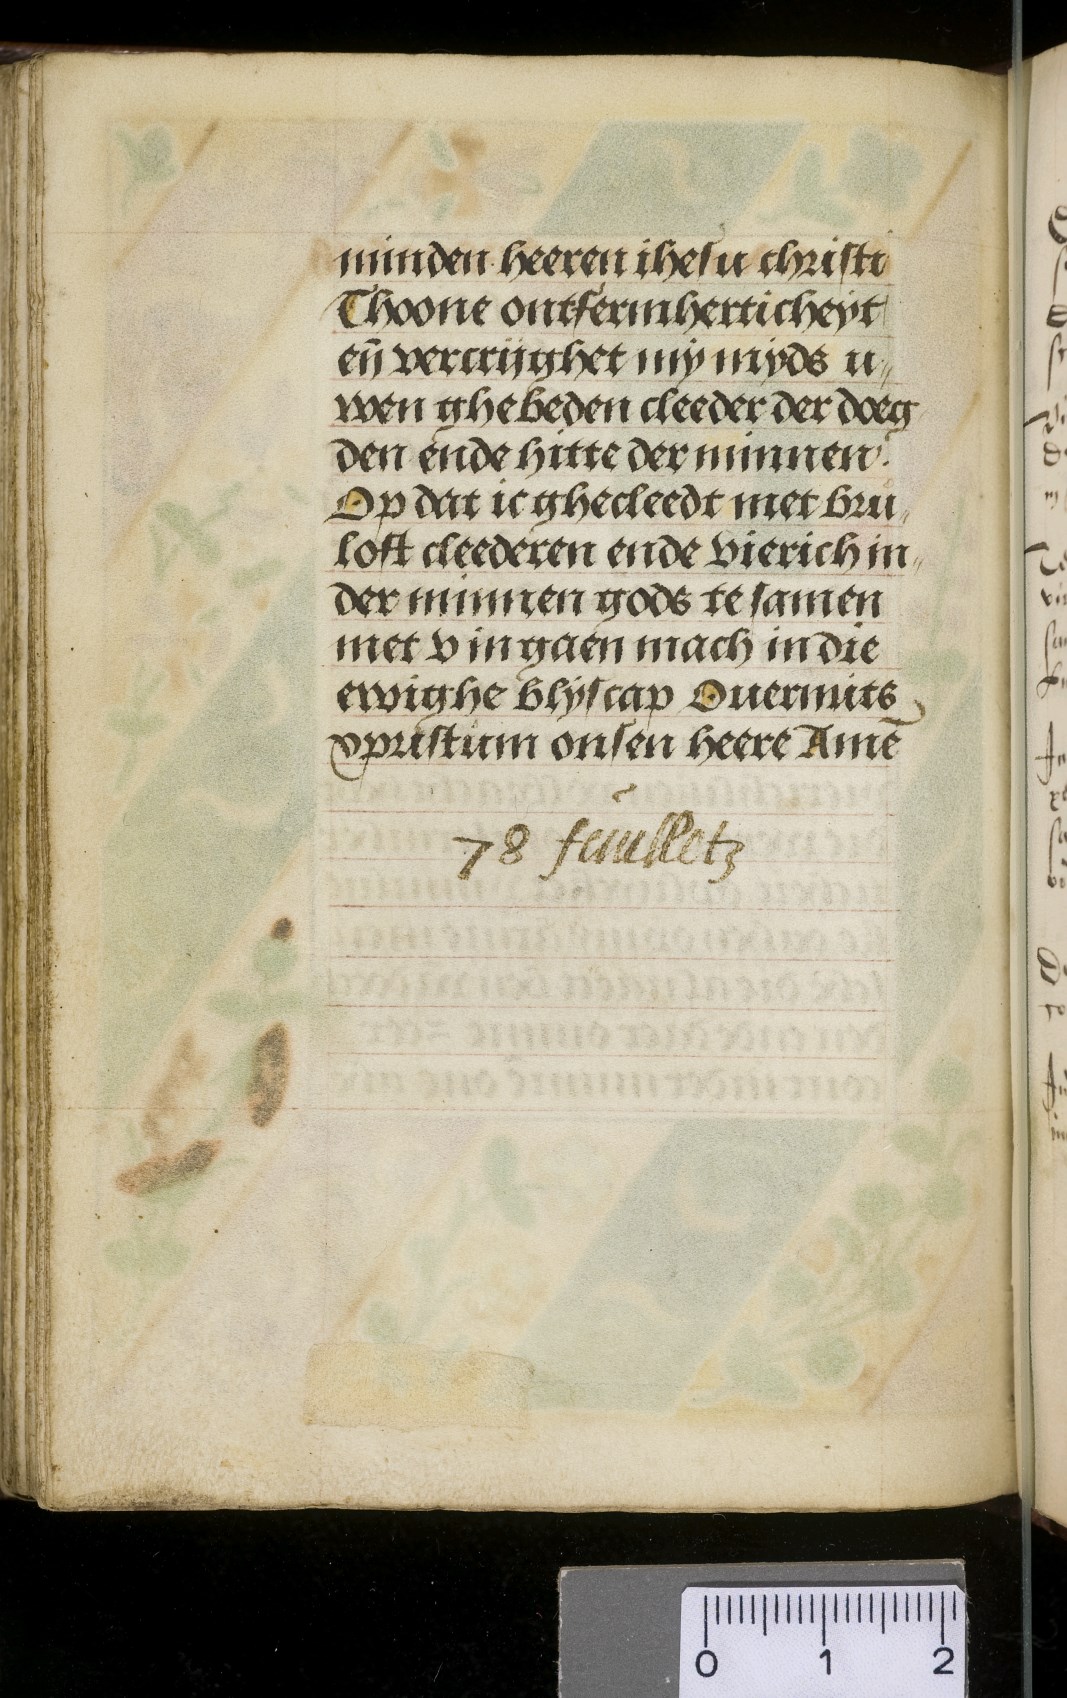 minden heeren ihesu christi
Thoone ontfermherticheyt
en̄ vercrijghet mÿ mÿds u〃
wen ghebeden cleeder der doeg
den ende hitte der minnen.
Op dat ic ghecleedt met bru〃
loft cleederen ende vierich in〃
der minnen gods te samen
met v in gaen mach in die
ewighe blÿscap Ouermits
xpristum onsen heere Amē
78 feuilletz
0 1 2